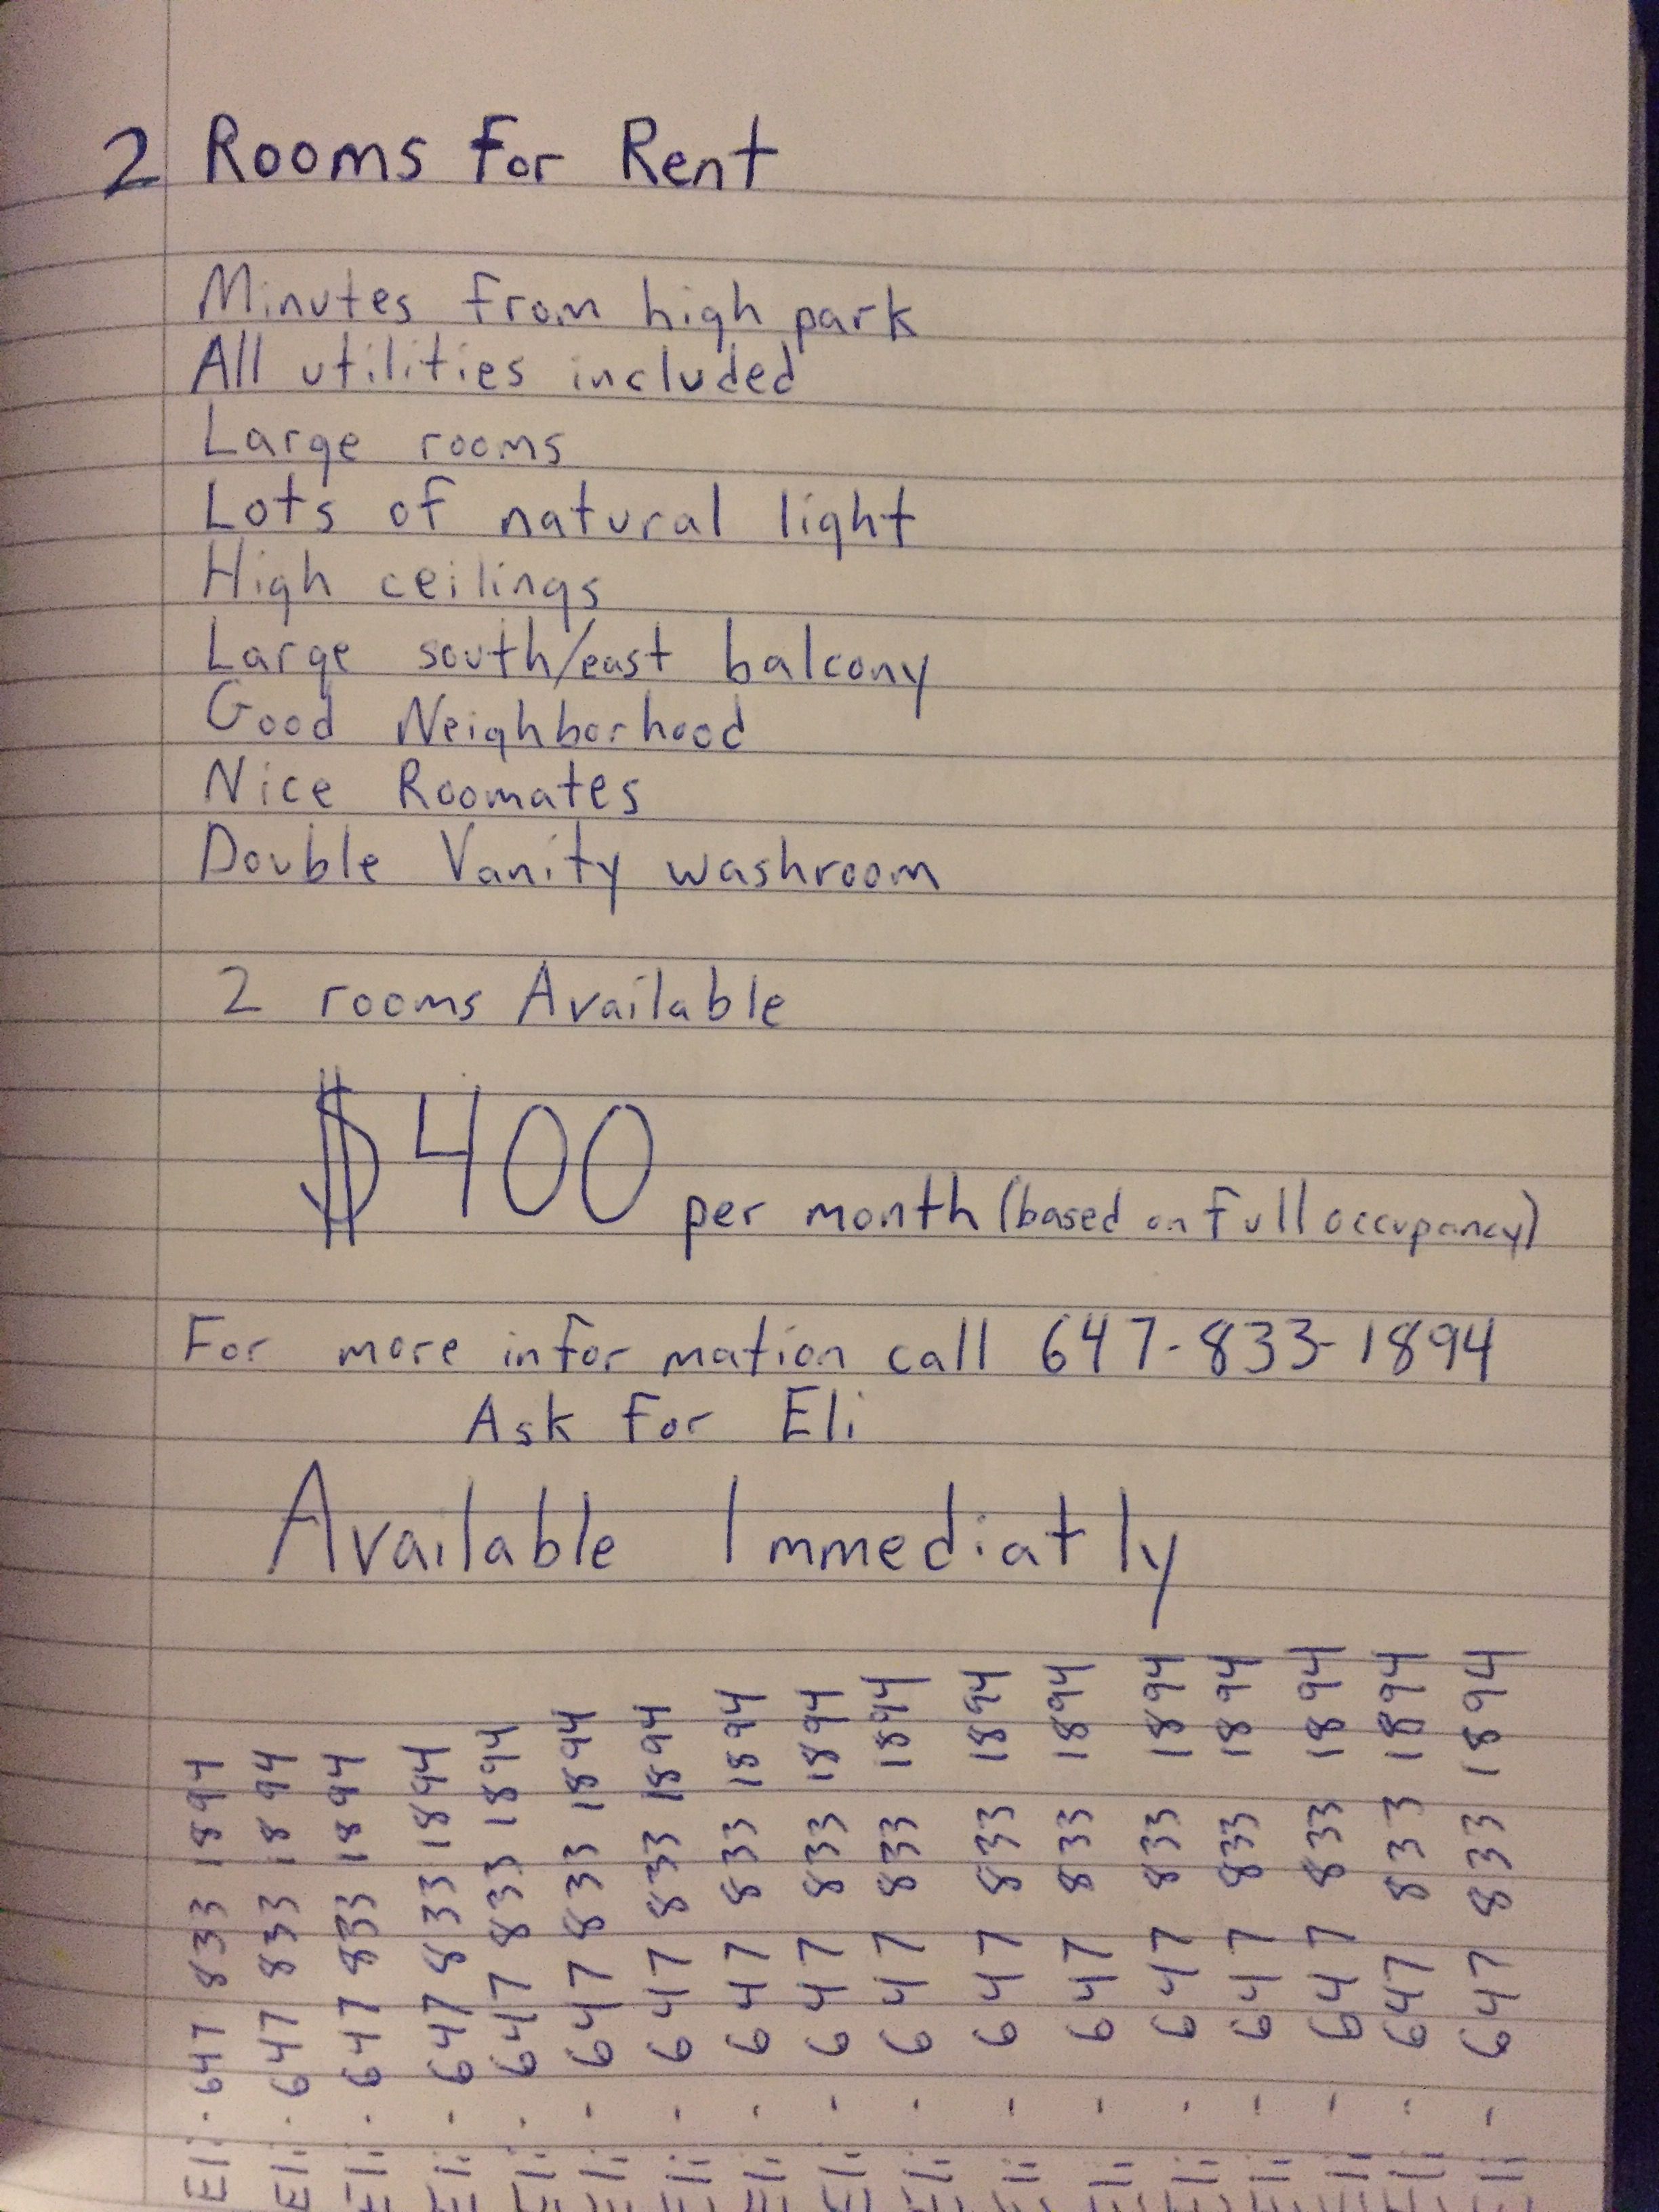 2 Rooms for Rent
Minutes from high park
All utilities included
Large rooms
Lots of natural light
High ceilings
Large south/east balcony
Good Neighborhood
Nice Roomates
Double Vanity washroom
2 rooms Available
$400 per month (based on full occupancy)
For more information call 647-833-1894
Ask for Eli
Available Immediatly
Eli - 647 833 1894
Eli - 647 833 1894
Eli - 647 833 1894
Eli - 647 833 1894
Eli - 647 833 1894
Eli - 647 833 1894
Eli - 647 833 1894
Eli - 647 833 1894
Eli - 647 833 1894
Eli - 647 833 1894
Eli - 647 833 1894
Eli - 647 833 1894
Eli - 647 833 1894
Eli - 647 833 1894
Eli - 647 833 1894
Eli - 647 833 1894
Eli - 647 833 1894